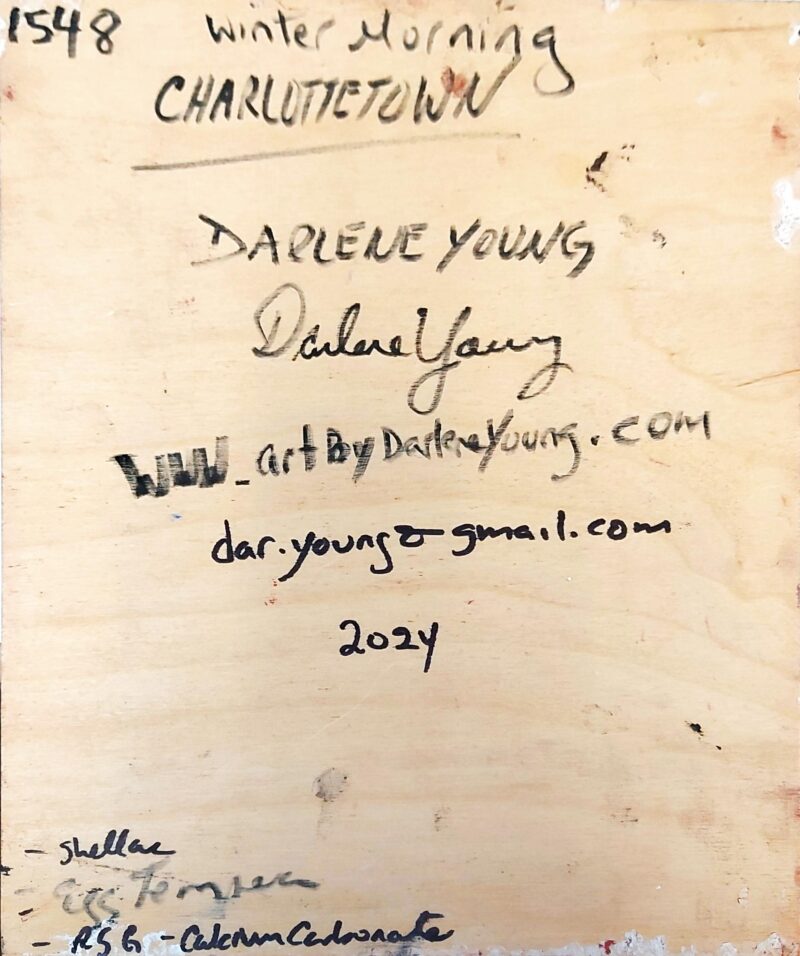 1548 Winter Morning
CHARLOTTETOWN
DARLENE YOUNG
Darlene Young
www.artByDarleneYoung.com
dar.young@gmail.com
2024
- shellac
- Egg Tempera
- RSG - Calcium Carbonate